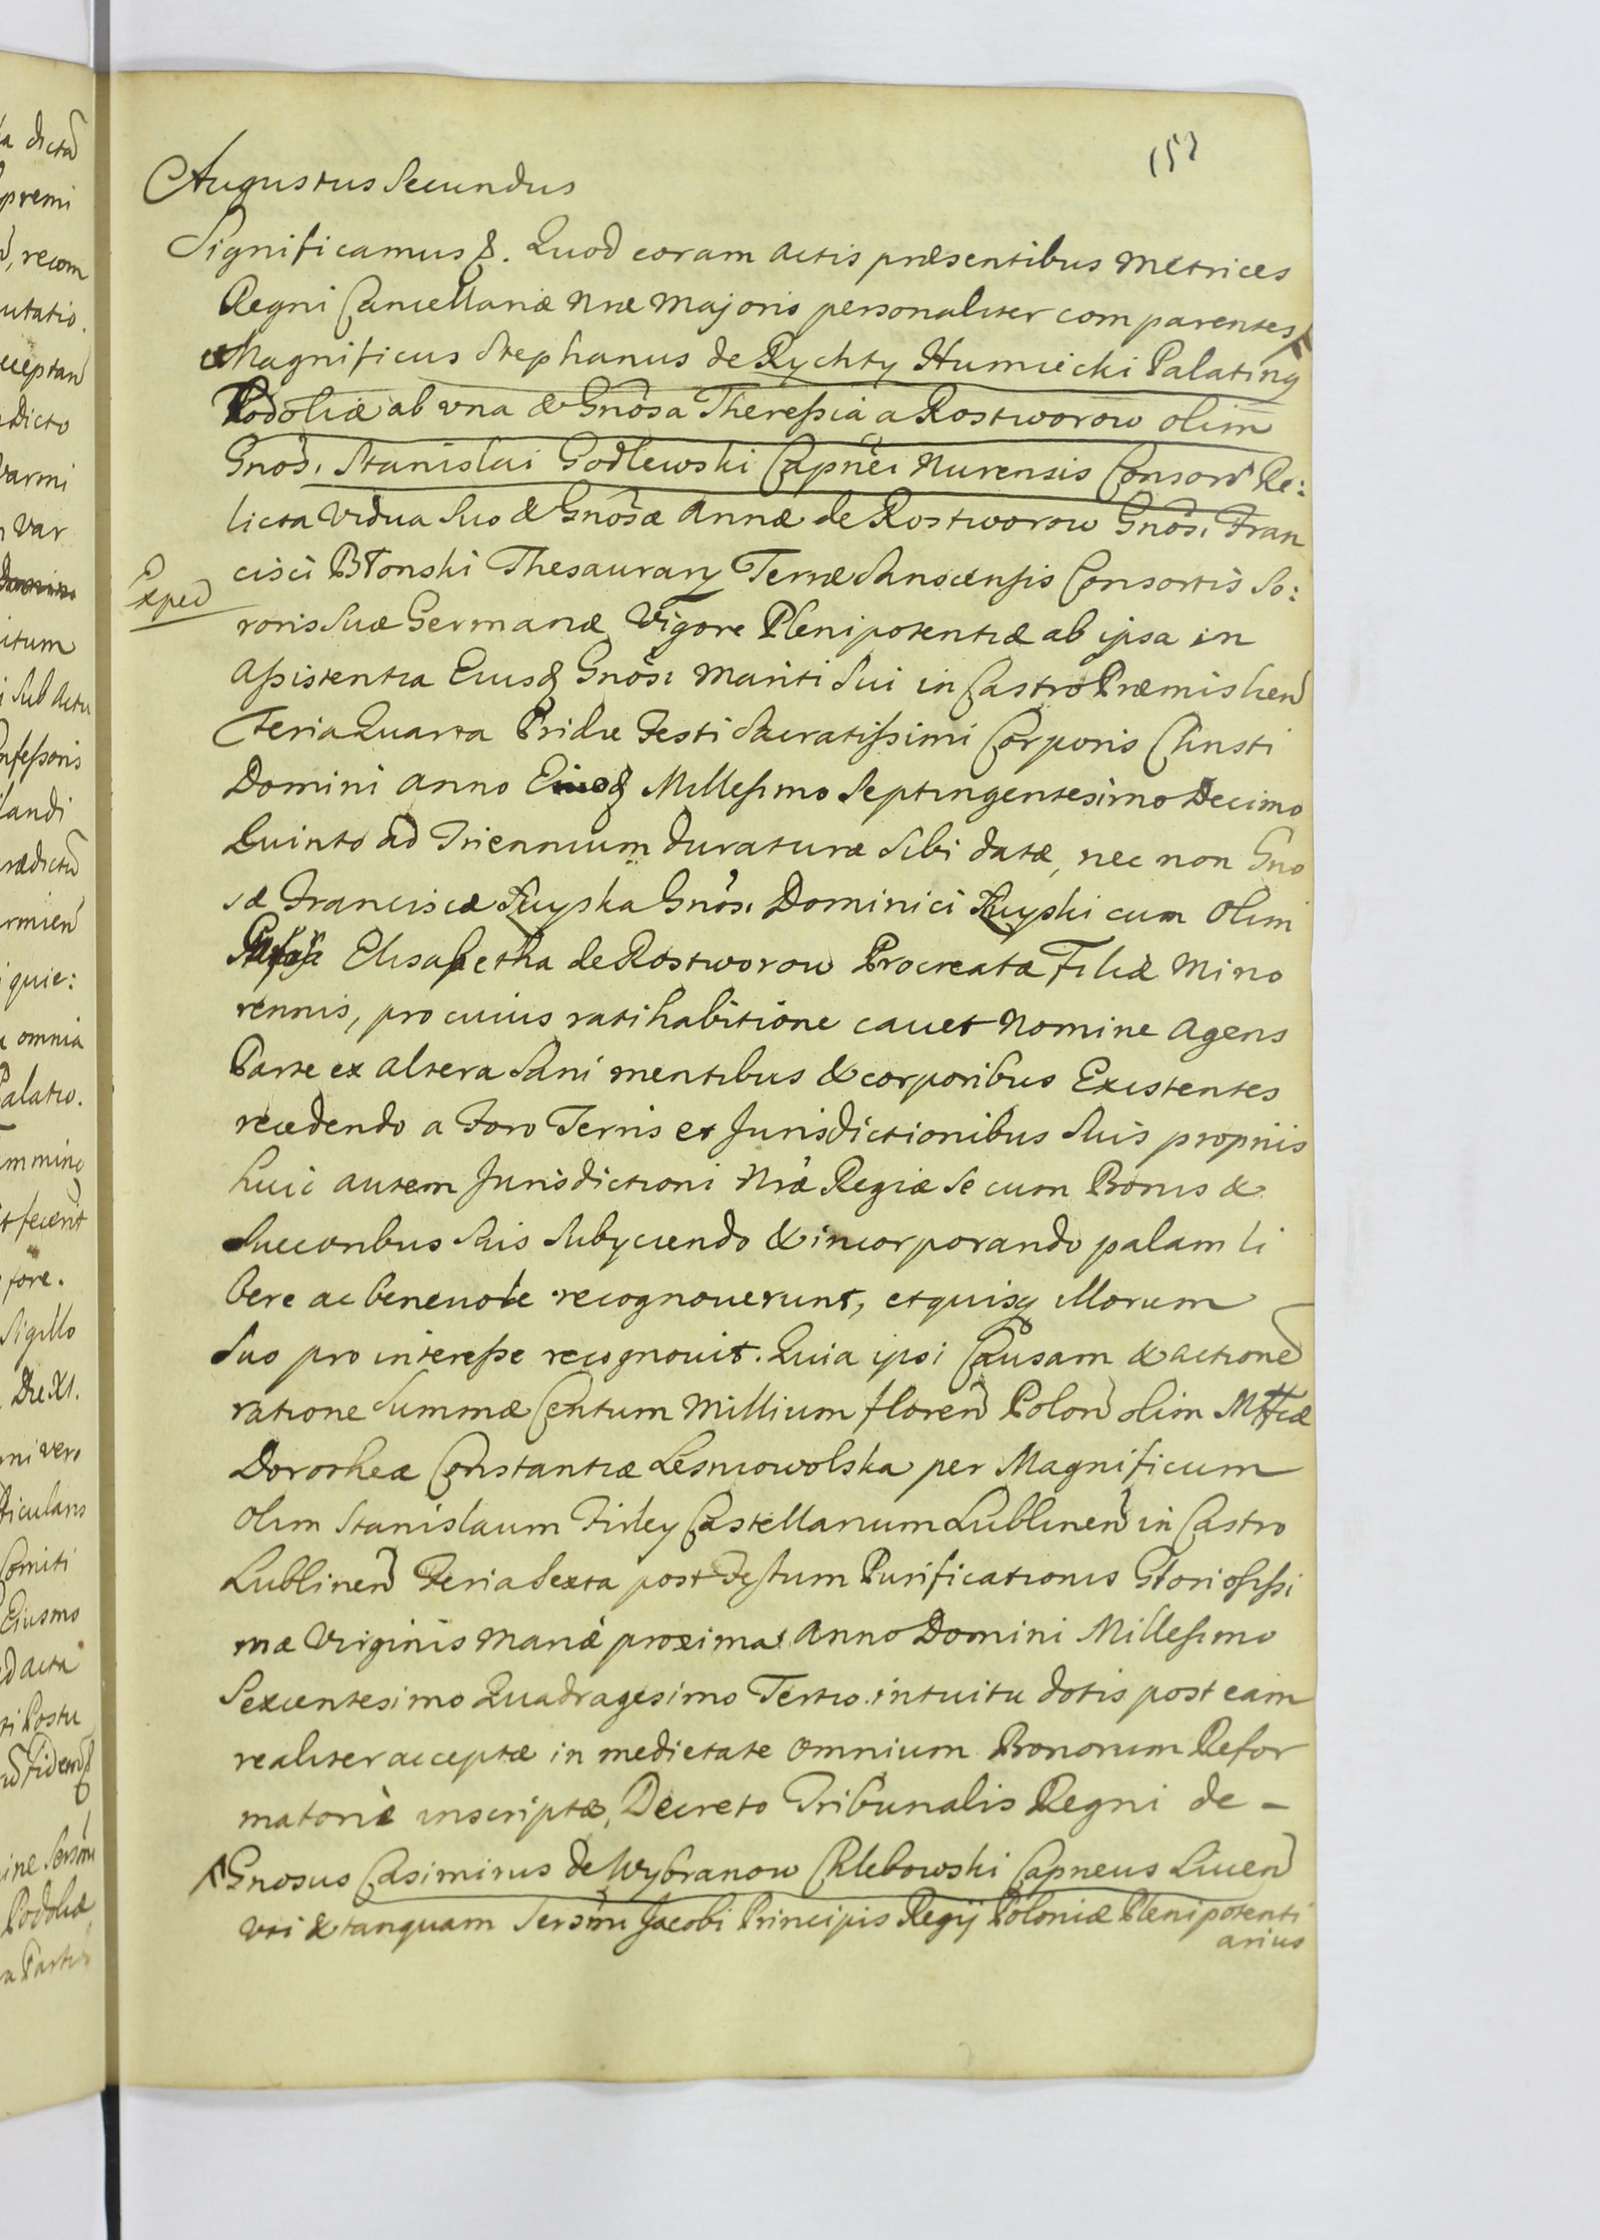 153
Augustus Secundus
Significamus &. Quod coram Actis præsentibus Metrices
Regni Cancellariæ Nræ Majoris personaliter comparentes
& Magnificus Stephanus de Rychty Humiecki Palatinꝫ
Podoliæ ab una & Gnosa Theressia a Rostworow olim
Gnosi Stanislai Godlewski Capnei Nurensis Consors Re:
licta Vidua Suo & Gnosæ Annæ de Rostworow Gnosi Fran
cisci Błonski Thesaurary Terræ Sanocensis Consortis So:
Exped
roris Suæ Germanæ Vigore Plenipotentiæ ab ipsa in
Assistentia Eiusꝗ Gnosi Mariti Sui in Castro Præmislien
Feria Quarta Pridie Festi Sacratissimi Corporis Christi
Domini Anno Eiusꝗ Millesimo Septingentesimo Decimo
Quinto ad Triennium duraturæ Sibi datæ, nec non Gno
sæ Franciscæ Gnosi Dominici cum Olim
Elisabetha de Rostworow Procreatæ Filiæ Mino
rennis, pro cuius ratihabitione cavet Nomine Agens
Parte ex altera Sani mentibus & corporibus Existentes
recedendo a Foro Terris et Jurisdictionibus Suis propriis
huic autem Jurisdictioni Nræ Regiæ Se cum Bonis &
Succoribus Suis Subyciendo & incorporando palam li
bere ac benevole recognoverunt, et quisꝗ Illorum
Suo pro interesse recognovit. Quia ipsi Causam & actionẽ
ratione Summæ Centum Millium floren Polon olim Mfficæ
Dorotheæ Constantiæ Lesniowolska per Magnificum
Olim Stanislaum Firley Castellanum Lublinen in Castro
Lublinen Feria Sexta post Festum Purificationis Gloriosissi
mæ Virginis Mariæ proxima Anno Domini Millesimo
Sexcentesimo Quadragesimo Tertio intuitu dotis post eam
realiter acceptæ in medietate Omnium Bonorum Refor
matorie inscriptæ, Decreto Tribunalis Regni de -
Gnosus Casimirus de Wybranow Chlebowski Capneus Liuen
uti & tanquam Sersmi Jacobi Principis Regij Poloniæ Plenipotenti
arius